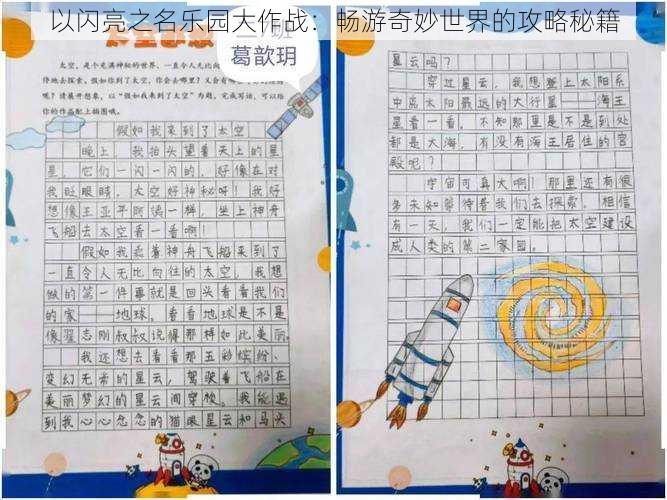 以闪亮之名乐园大作战：畅游奇妙世界的攻略秘籍
葛歆玥
太空，是个充满神秘的世界，一直令人无比向
侍去地探索。假如你到了太空，你会去哪里？又会有
呢？请展开想象，以“假如我来到了太空”为题，完成写话，可以给
你的作品配上插图哦。
假如我来到了太空
晚上，我抬头望着天上的星
星，它们一闪一闪的，好像在对
我眨眼睛，太空好神秘呀！我好
想像王亚平阿姨一样，坐上神舟
飞船去太空看一看啊！
假如我乘着神舟飞船来到了
一直令人无比向往的太空，我想
做的第一件事就是回头看看我们
的家——地球，看看地球是不是
像翟志刚叔叔说得那样如此美丽。
我还想去看看那五彩缤纷、
变幻无常的星云，驾驶着飞船在
美丽梦幻的星云间穿梭，我能遇
到我心心念念的猫眼星云和马头
星云吗？
穿过星云，我想登上太阳系
中离太阳最远的大行星——海王
星看一看。不知那里是不是到处
都是大海，有没有海王居住的宫
殿呢？
宇宙可真大啊！那里还有很
多未知等待着我们去探索。相信
有一天，我们一定能把太空建设
成人类的第二家园。